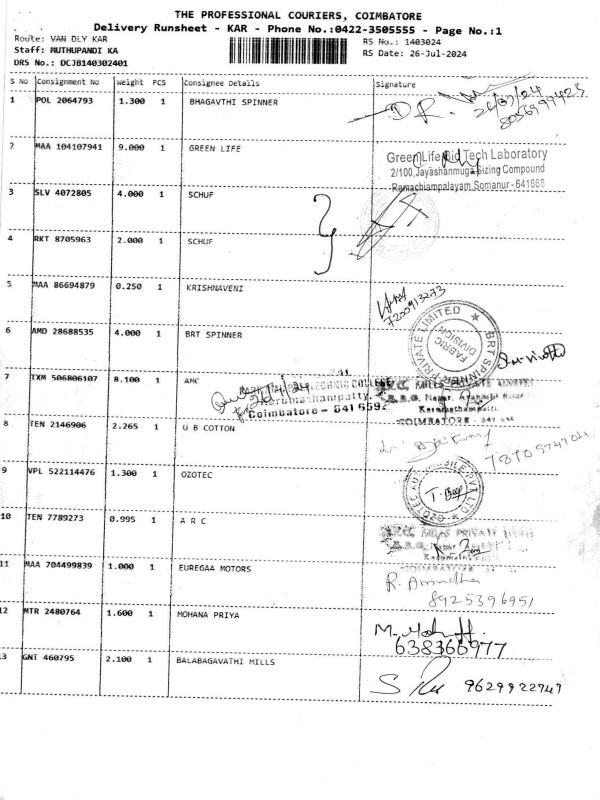 THE PROFESSIONAL COURIERS, COIMBATORE
Delivery Runsheet - KAR - Phone No.:0422-3505555 - Page No.:1
Route: VAN DLY KAR
RS No.: 1403024
Staff: MUTHUPANDI KA
RS Date: 26-Jul-2024
DRS No.: DCJB140302401
S No Consignment No Weight PCS Consignee Details Signature
1 POL 2064793 1.300 1 BHAGAVTHI SPINNER
26/07/24
2 MAA 104107941 9.000 1 GREEN LIFE
Green Life Bio Tech Laboratory
2/100, Jayashanmuga Sizing Compound
Ramachiampalayam, Somanur - 641668
3 SLV 4072805 4.000 1 SCHUF
4 RKT 8705963 2.000 1 SCHUF
5 MAA 86694879 0.250 1 KRISHNAVENI
7200913273
6 AMD 28688535 4.000 1 BRT SPINNER
BRT SPINNER PRIVATE LIMITED
FABRIC DIVISION
7 TXM 506806107 8.100 1 AMC
Coimbatore - 641 659
8 TEN 2146906 2.265 1 U B COTTON
9 VPL 522114476 1.300 1 OZOTEC
10 TEN 7789273 0.995 1 A R C
MILLS PRIVATE
11 MAA 704499839 1.000 1 EUREGAA MOTORS
8925396951
12 MTR 2480764 1.600 1 MOHANA PRIYA
638366977
13 GNT 460795 2.100 1 BALABAGAVATHI MILLS
9629922747